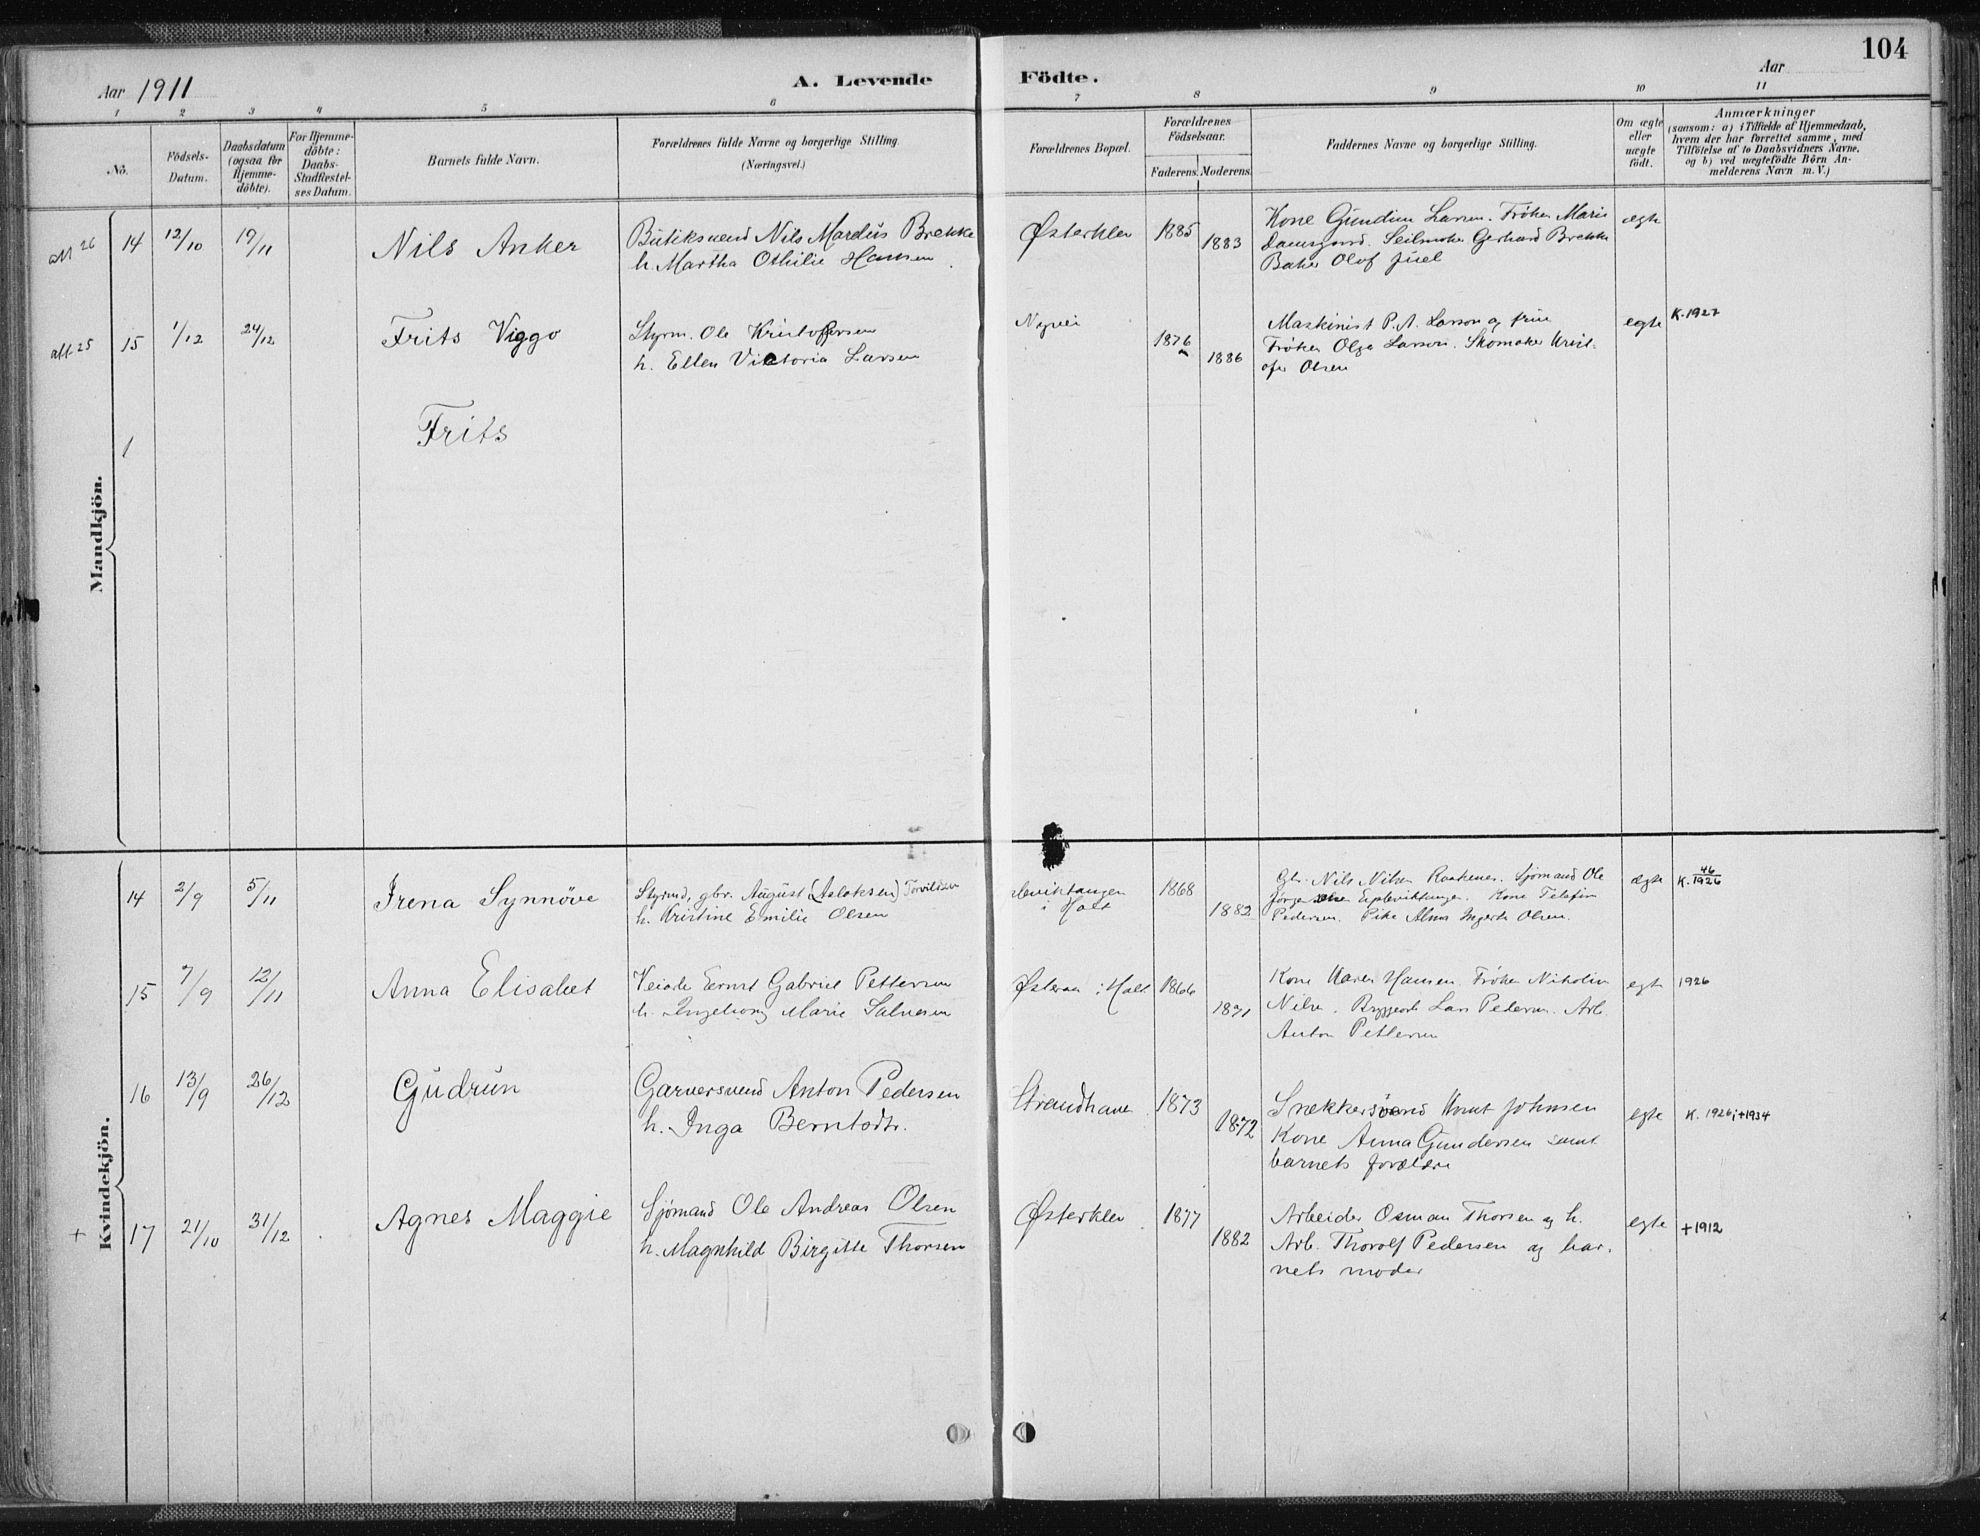 Aar 1911
A. Levende Födte.
Aar
104
1 2 3 4 5 6 7 8 9 10 11
No.
Födsels-
Datum.
Daabsdatum
(ogsaa for
Hjemme-
döbte).
For Hjemme-
döbte:
Daabs-
Stadfæstel-
ses Datum.
Barnets fulde Navn.
Forældrenes fulde Navne og borgerlige Stilling.
(Næringsvei.)
Forældrenes Bopæl.
Forældrenes
Födselsaar.
Faderens. Moderens.
Faddernes Navne og borgerlige Stilling.
Om ægte
eller
uægte
født.
Anmærkninger
(saasom: a) i Tilfælde af Hjemmedaab,
hvem der har forrettet samme, med
Tilföielse af to Daabsvidners Navne,
og b) ved uægtefödte Börn An-
melderens Navn m. V.)
Mandkjön.
att 26 14 12/10 19/11 Nils Anker
Butiksvend Nils Mardus Brekke
h. Martha Othilie Hansen
Østerklev 1885 1883
Kone Gundine Larsen. Frøken Marie
Damsgaard. Seilmaker Gerhard Brekke
Baker Olof Juel
ægte
att 25 15 1/12 24/12 Frits Viggo
Styrm. Ole Kristofersen
h. Ellen Viktoria Larsen
Nyvei 1876 1886
Maskinist P. A. Larson og frue
Frøken Olga Larsen. Skomaker Krist-
ofer Olsen
egte K. 1927
1 Frits
Kvindekjön.
14 2/9 5/11 Irena Synnöve
Styrmd, gbr. August (Aslaksen) Torvildsen
h. Kristine Emilie Olsen
i Holt 1868 1882
Gbr. Nils Nilsen Raakenes. Sjømand Ole
Jørgensen Epleviktangen. Kone Telefine
Pedersen. Pike Alma Ingerte Olsen.
ægte K. 46/1926
15 7/9 12/11 Anna Elisabet
Veiarb. Ernst Gabriel Pettersen
h. Ingeborg Marie Salvesen
Østeraa i Holt 1866 1871
Kone Karen Hansen. Frøken Nikoline
Nilsen. Bryggearb. Lars Pedersen. Arb.
Anton Pettersen
egte 1926
16 13/9 26/12 Gudrun
Garversvend Anton Pedersen
h. Inga Berntsdtr.
Strandhave 1873 1872
Snekkersvend Knut Johnsen
Kone Anna Gundersen samt
barnets forældre
egte K. 1926; +1934
+ 17 21/10 31/12 Agnes Maggie
Sjømand Ole Andreas Olsen
h. Magnhild Birgitte Thorsen
Østerklev 1877 1882
Arbeider Osman Thorsen og h.
Arb. Thorolf Pedersen og bar-
nets moder
egte +1912